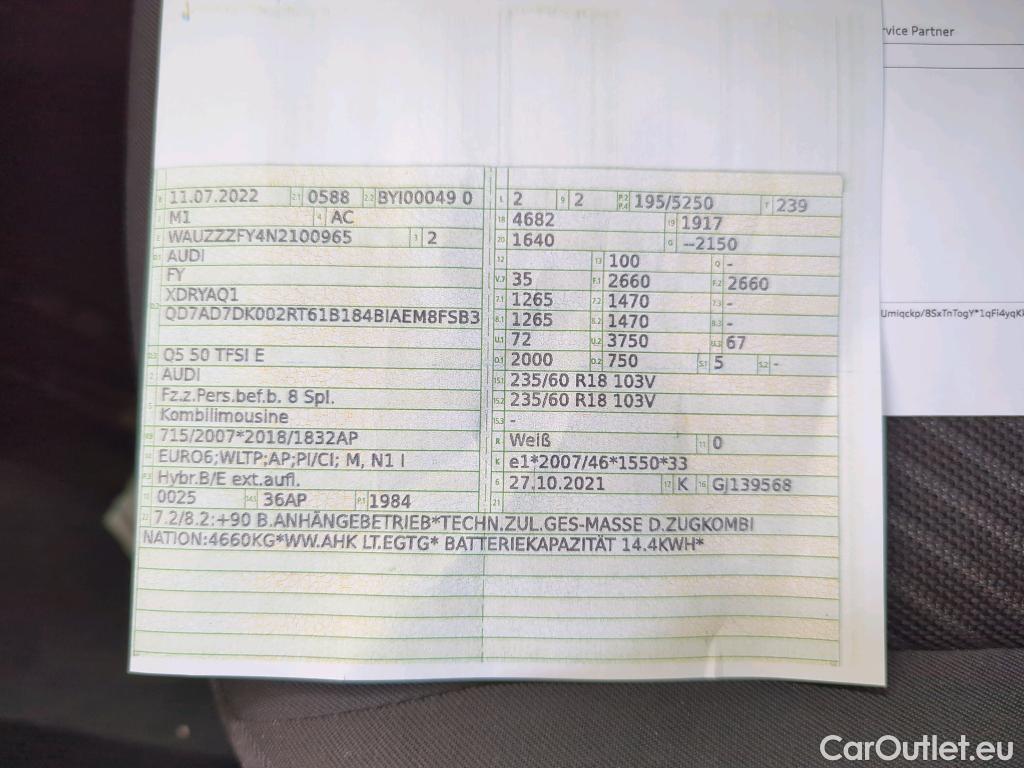 rvice Partner
B 11.07.2022 2.1 0588 2.2 BYI00049 0
J M1 4 AC
E WAUZZZFY4N2100965 3 2
D.1 AUDI
FY
XDRYAQ1
D.2 QD7AD7DK002RT61B184BIAEM8FSB3
D.3 Q5 50 TFSI E
2 AUDI
Fz.z.Pers.bef.b. 8 Spl.
5 Kombilimousine
V.9 715/2007*2018/1832AP
14 EURO6;WLTP;AP;PI/CI; M, N1 I
P.3 Hybr.B/E ext.aufl.
10 0025 14.1 36AP P.1 1984
L 2 9 2 P.2 P.4 195/5250 T 239
18 4682 19 1917
20 1640 G --2150
12 13 100 Q -
V.7 35 F.1 2660 F.2 2660
7.1 1265 7.2 1470 7.3 -
8.1 1265 8.2 1470 8.3 -
U.1 72 U.2 3750 U.3 67
O.1 2000 O.2 750 S.1 5 S.2 -
15.1 235/60 R18 103V
15.2 235/60 R18 103V
15.3 -
R Weiß 11 0
K e1*2007/46*1550*33
6 27.10.2021 17 K 16 GJ139568
21
22 7.2/8.2:+90 B.ANHÄNGEBETRIEB*TECHN.ZUL.GES-MASSE D.ZUGKOMBI
NATION:4660KG*WW.AHK LT.EGTG* BATTERIEKAPAZITÄT 14.4KWH*
Umiqckp/8SxTnTogY*1qFi4yqK
CarOutlet.eu